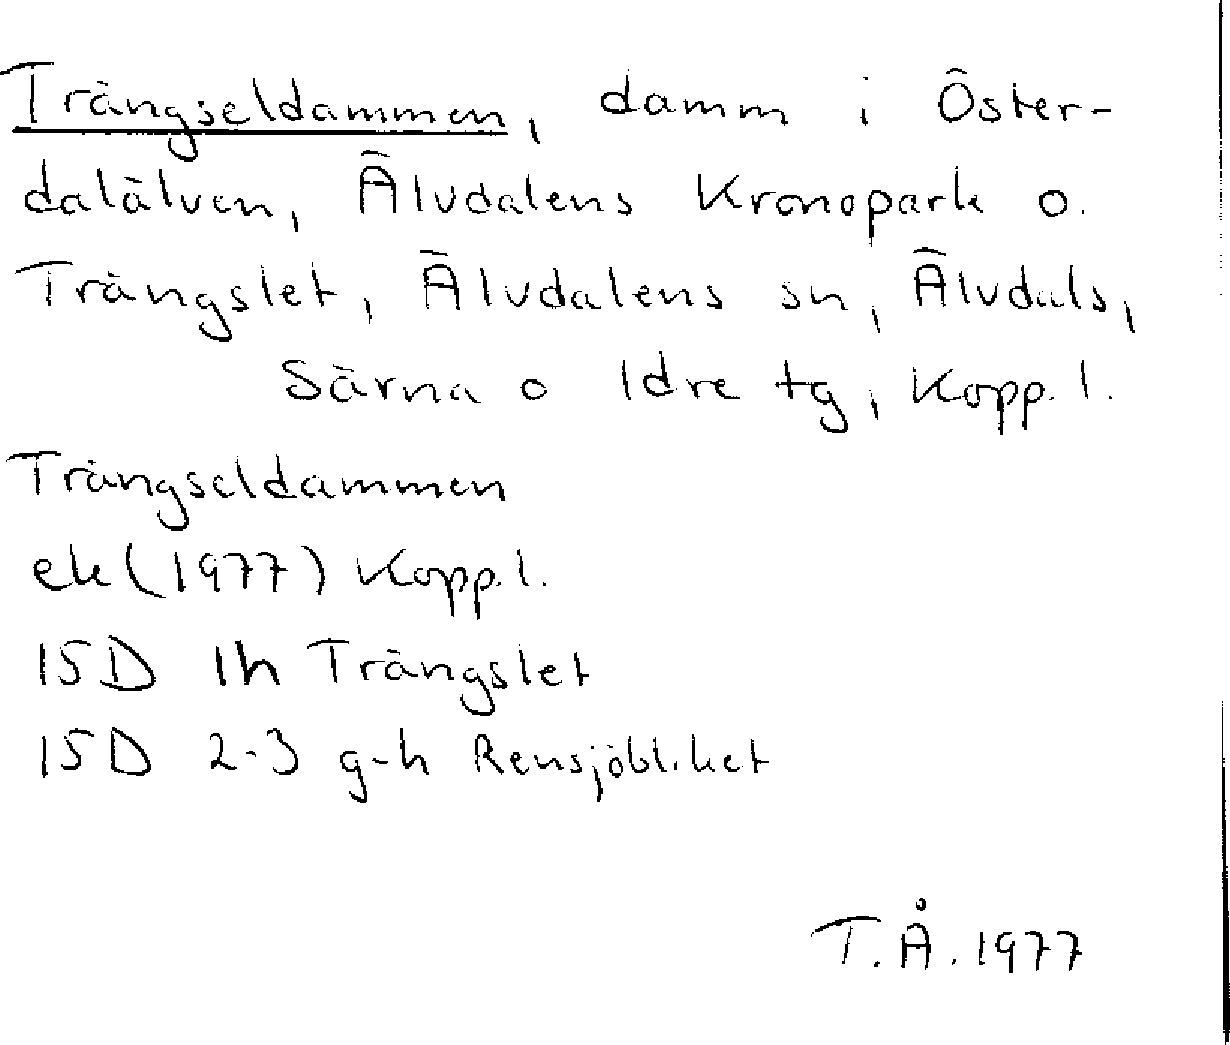 Trängseldammen, damm i Öster-
dalälven, Älvdalens Kronopark o.
Trängslet, Älvdalens sn, Älvdals,
Särna o Idre tg, Kopp. l.
Trängseldammen
ek (1977) Kopp. l.
15D 1h Trängslet
15D 2-3 g-h Rensjöblicket
T.Å. 1977